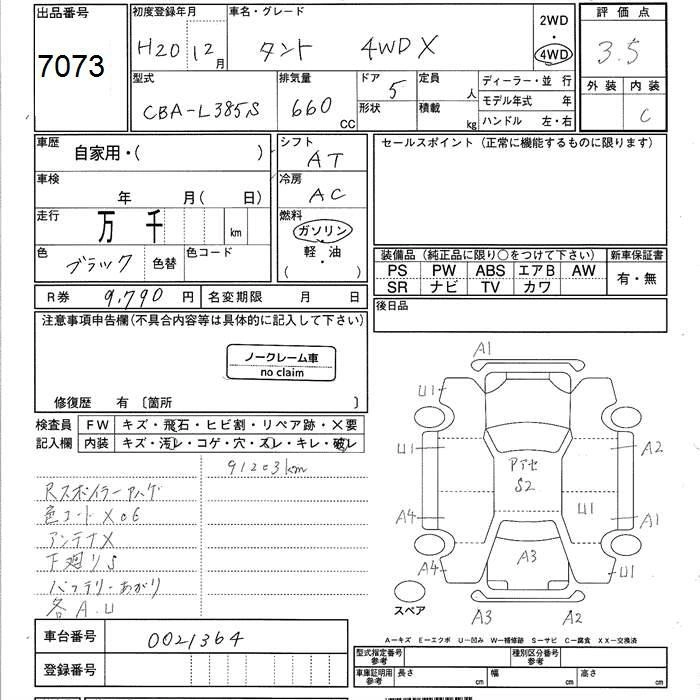 出品番号
7073
初度登録年月
H20 12月
車名・グレード
タント 4WD X
2WD
・
4WD
評価点
3.5
外装 内装
C
型式
CBA-L385S
排気量
660 CC
ドア 5
形状
定員 人
積載 kg
ディーラー・並 行
モデル年式 年
ハンドル 左・右
車歴
自家用・( )
シフト
AT
車検
年 月( 日)
冷房
AC
走行
万 千 km
燃料
ガソリン
軽・油
( )
色
ブラック
色替
色コード
R券 9,790 円
名変期限 月 日
セールスポイント (正常に機能するものに限ります)
装備品 (純正品に限り○をつけて下さい)
新車保証書
PS PW ABS エアB AW
SR ナビ TV カワ
有・無
後日品
注意事項申告欄(不具合内容等は具体的に記入して下さい)
ノークレーム車
no claim
修復歴 有 〔箇所 〕
検査員
記入欄
FW キズ・飛石・ヒビ割・リペア跡・×要
内装 キズ・汚レ・コゲ・穴・スレ・キレ・破レ
91203km
Rスポイラーアハゲ
色コードX06
アンテナX
下廻りS
バッテリーあがり
各A.U
A1
U1
U1
A2
アセ
S2
U1
A4
A1
A3
A4
U1
スペア
A3
A2
A―キズ E―エクボ U―凹み W―補修跡 S―サビ C―腐食 XX―交換済
車台番号 0021364
登録番号
型式指定番号
参考
種別区分番号
参考
車庫証明用
参考
長さ cm
幅 cm
高さ cm